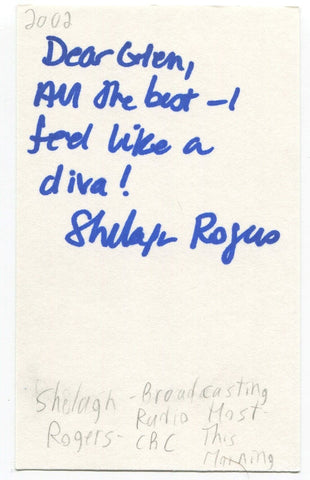 2002
Dear Glen,
All the best – I
feel like a
diva!
Shelagh Rogers
Shelagh - Broadcasting
Rogers - Radio Host -
CBC This
Morning